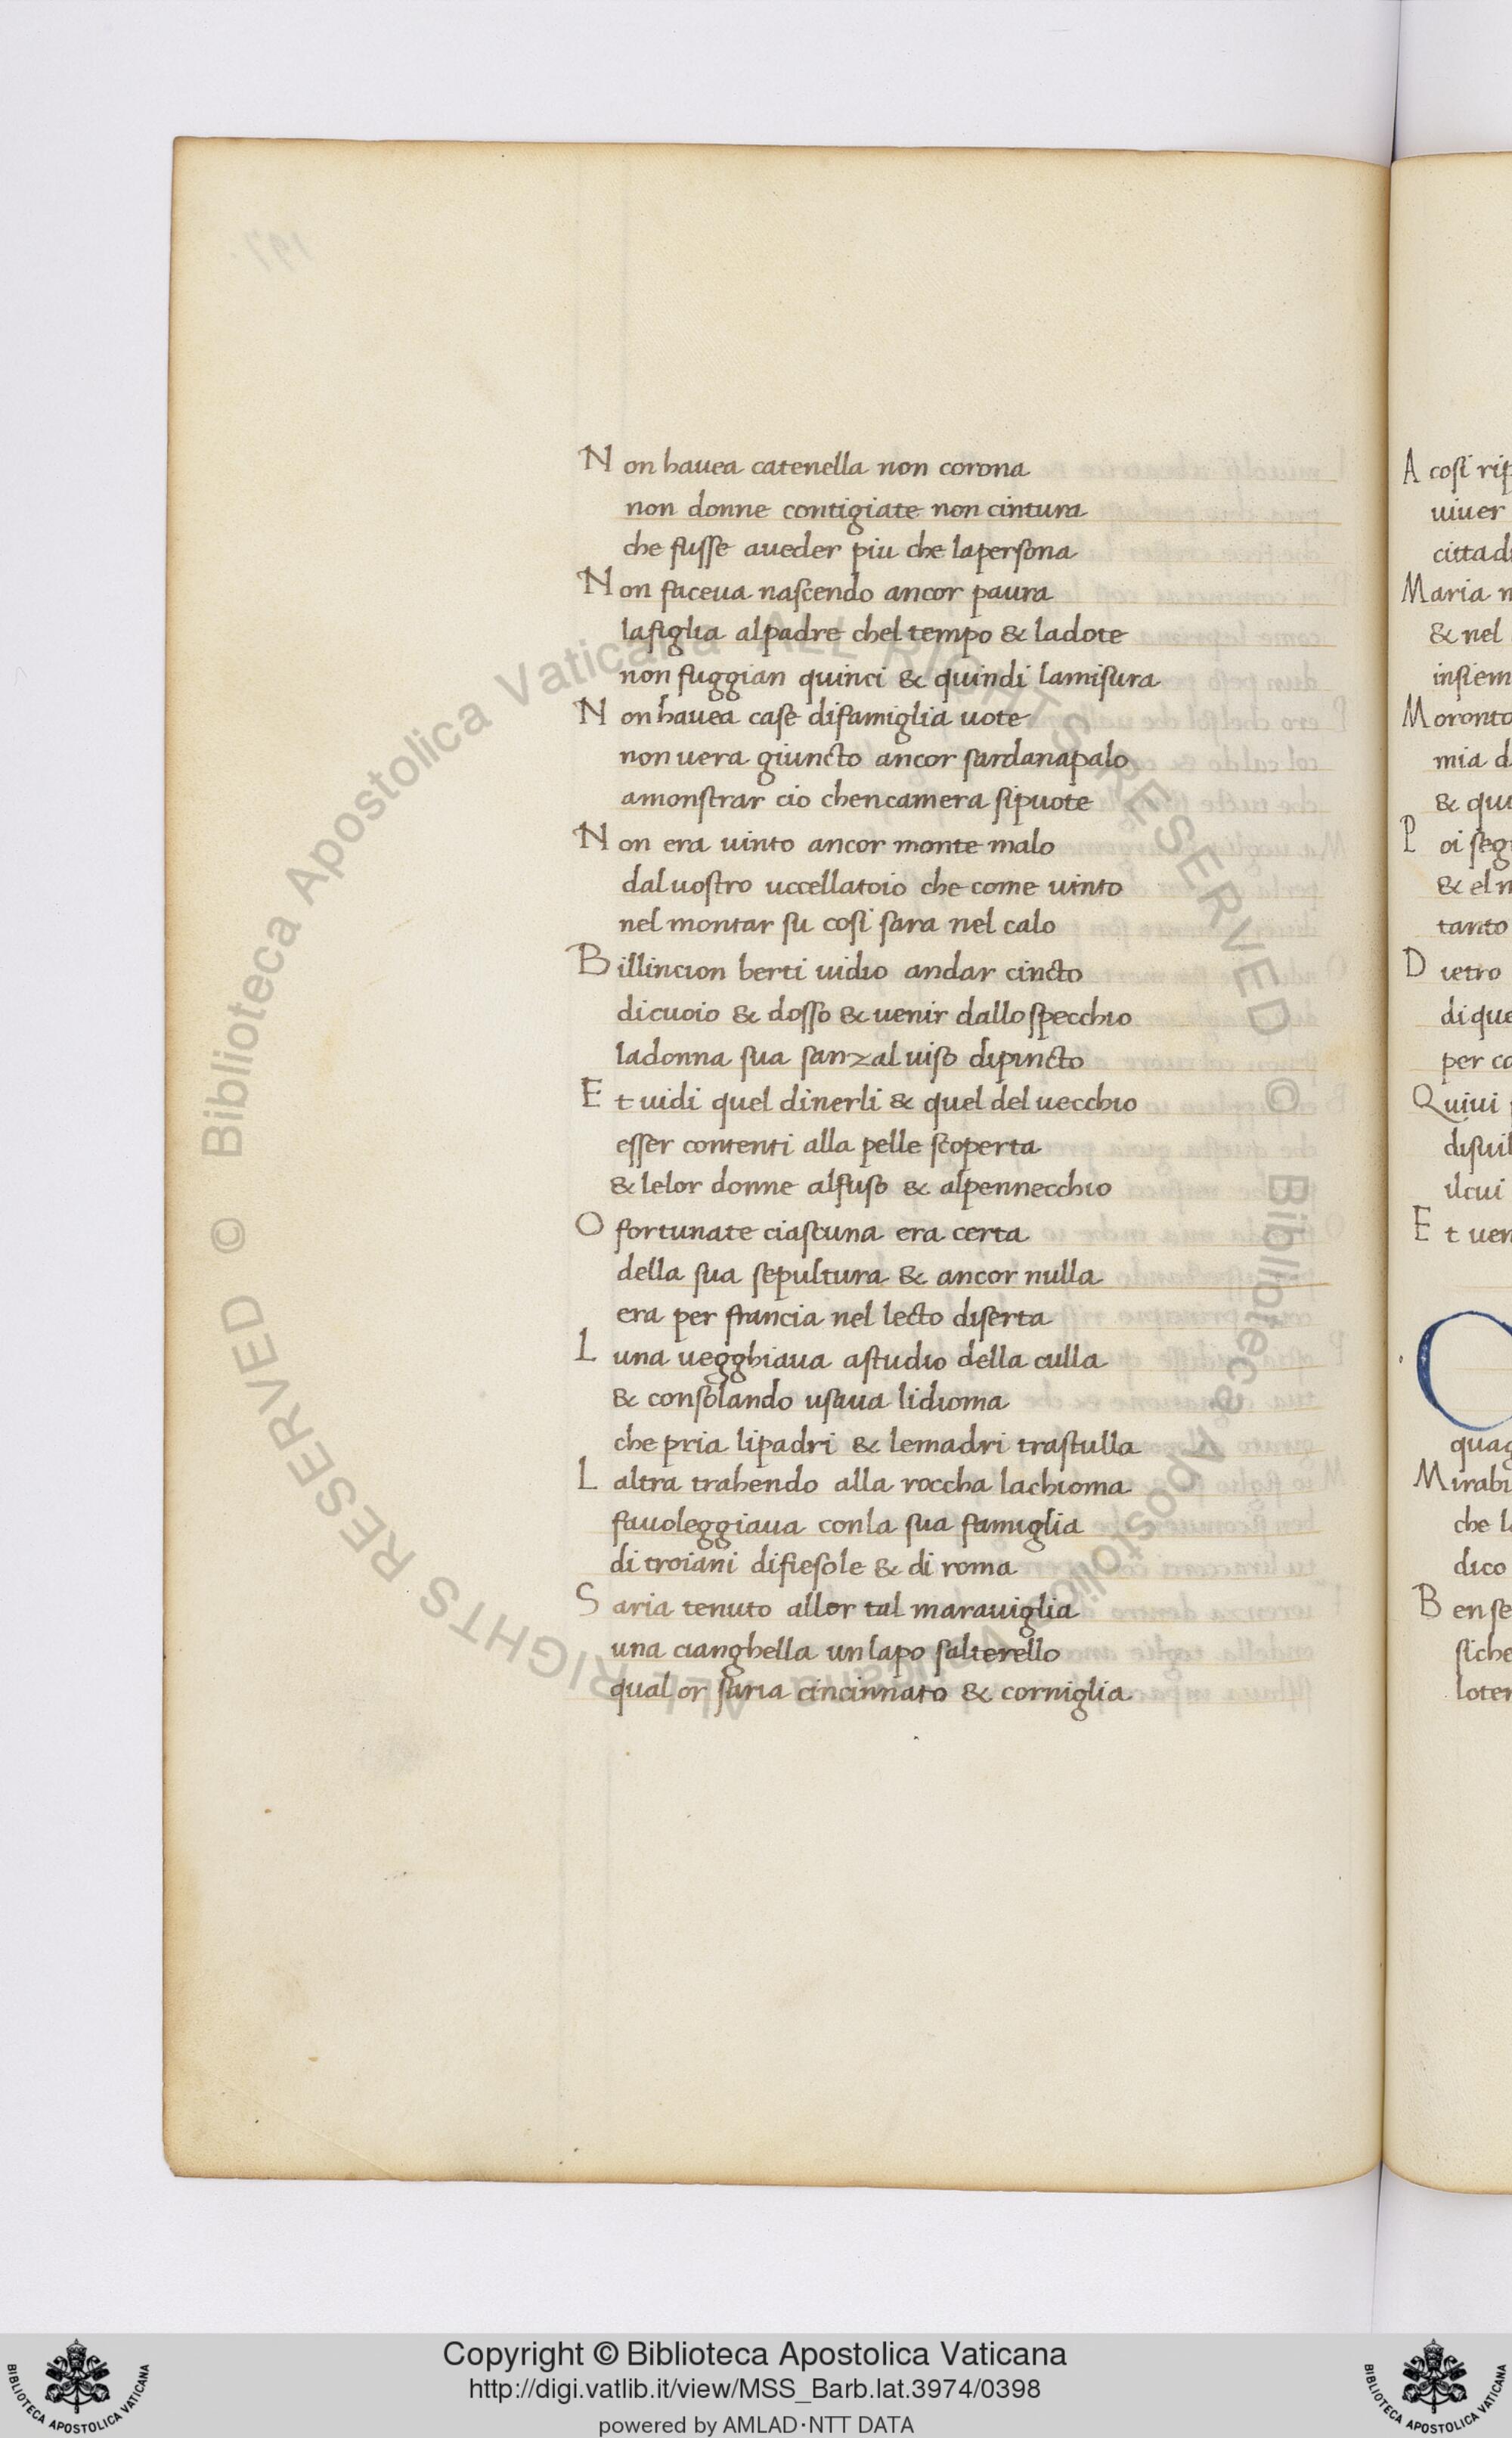 Non hauea catenella non corona
non donne contigiate non cintura
che fusse aueder piu che lapersona
Non faceua nascendo ancor paura
lafiglia alpadre chel tempo & ladote
non fuggian quinci & quindi lamisura
Non hauea case difamiglia uote
non uera giuncto ancor sardanapalo
amonstrar cio chencamera sipuote
Non era uinto ancor monte malo
daluostro uccellatoio che come uinto
nel montar su cosi sara nel calo
Billincion berti uidio andar cincto
dicuoio & dosso & uenir dallo specchio
ladonna sua sanzal uiso dipincto
Et uidi quel dinerli & quel del uecchio
esser contenti alla pelle scoperta
& lelor donne alfuso & alpennecchio
O fortunate ciascuna era certa
della sua sepultura & ancor nulla
era per francia nel lecto diserta
Luna uegghiaua astudio della culla
& consolando usaua lidioma
che pria lipadri & lemadri trastulla
Laltra trahendo alla roccha lachioma
fauoleggiaua conla sua famiglia
di troiani difiesole & di roma
Saria tenuto allor tal marauiglia
una cianghella un lapo salterello
qual or saria cincinnato & corniglia
A cosi rip
uiuer
cittad
Maria
& nel
insiem
Moronto
mia d
& qu
Poi seg
& el
tanto
Dietro
di que
per co
Quiui
disuil
ilcui
Et uen
quag
Mirabi
che l
dico
Ben se
siche
loter
© Biblioteca Apostolica Vaticana ALL RIGHTS RESERVED
© Biblioteca Apostolica Vaticana ALL RIGHTS RESERVED
Copyright © Biblioteca Apostolica Vaticana
http://digi.vatlib.it/view/MSS_Barb.lat.3974/0398
powered by AMLAD·NTT DATA
BIBLIOTECA APOSTOLICA VATICANA
BIBLIOTECA APOSTOLICA VATICANA